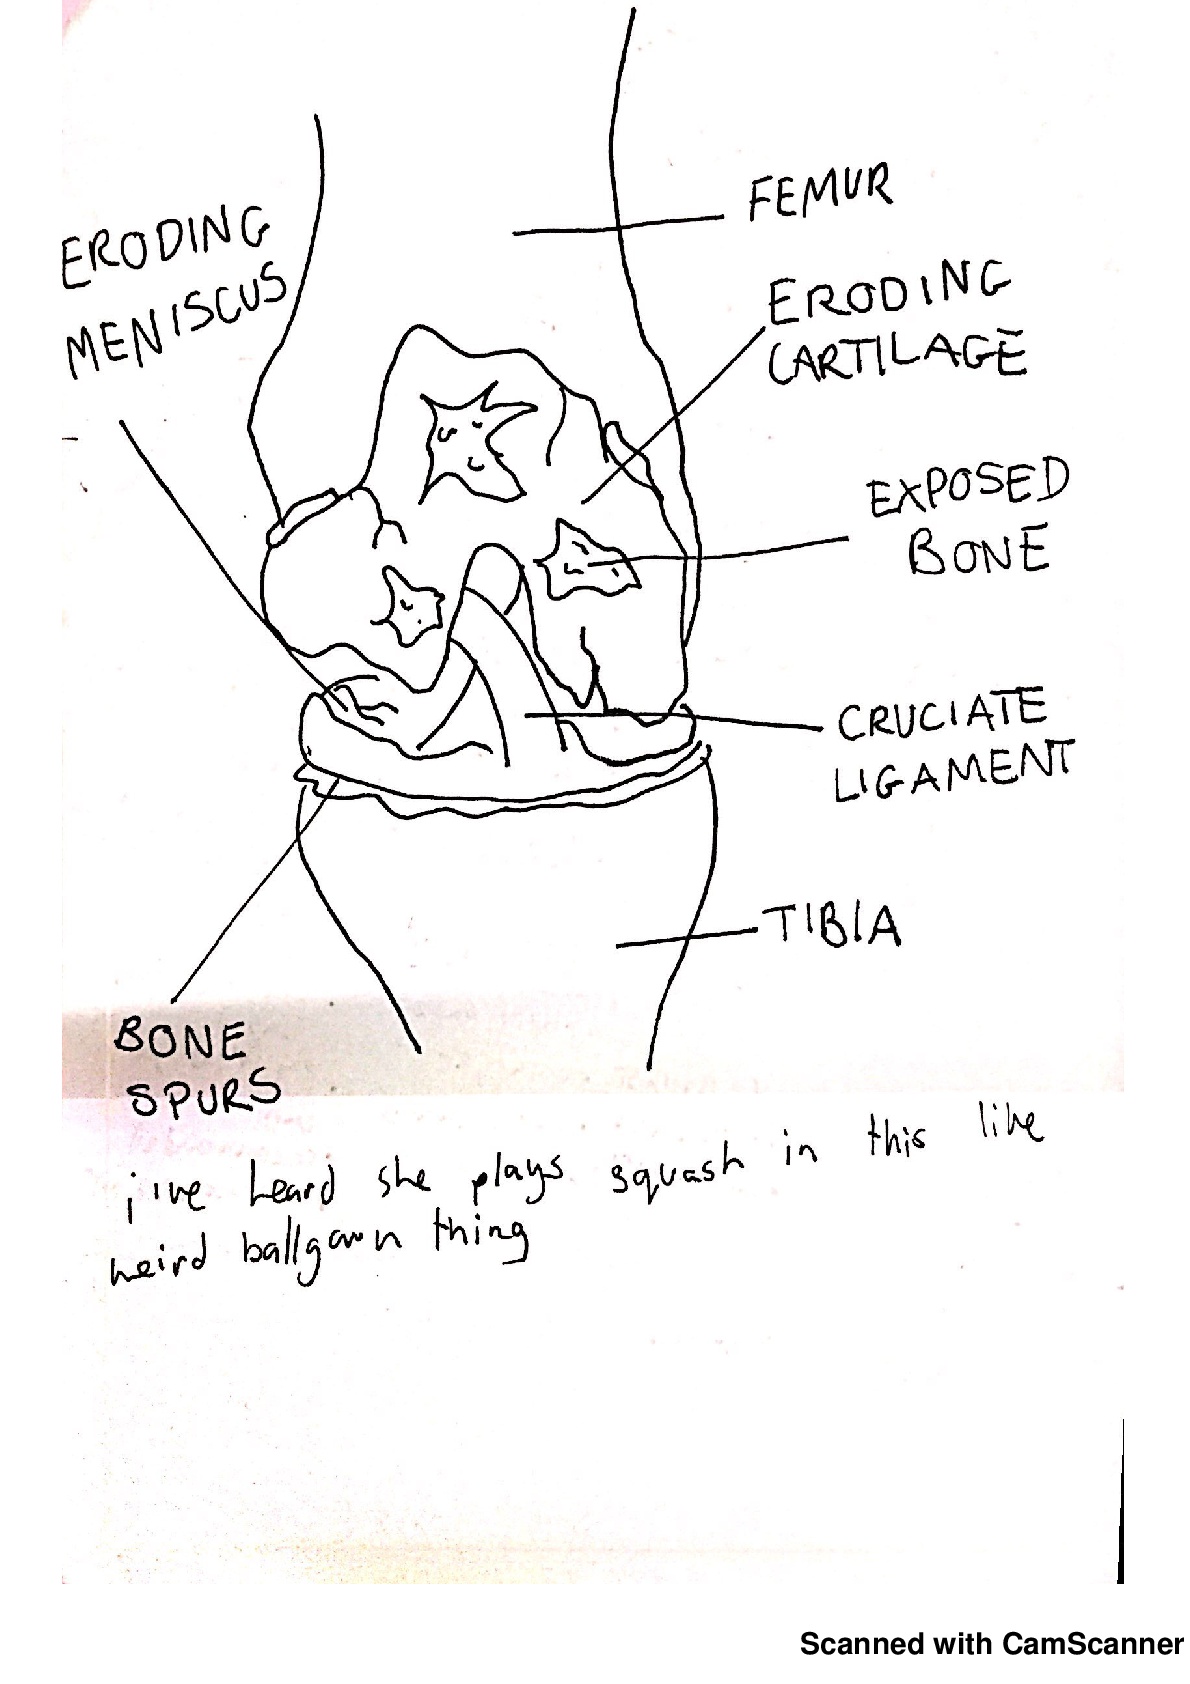 FEMUR
ERODING
MENISCUS
ERODING
CARTILAGE
EXPOSED
BONE
CRUCIATE
LIGAMENT
TIBIA
BONE
SPURS
i've heard she plays squash in this like
weird ballgown thing
Scanned with CamScanner